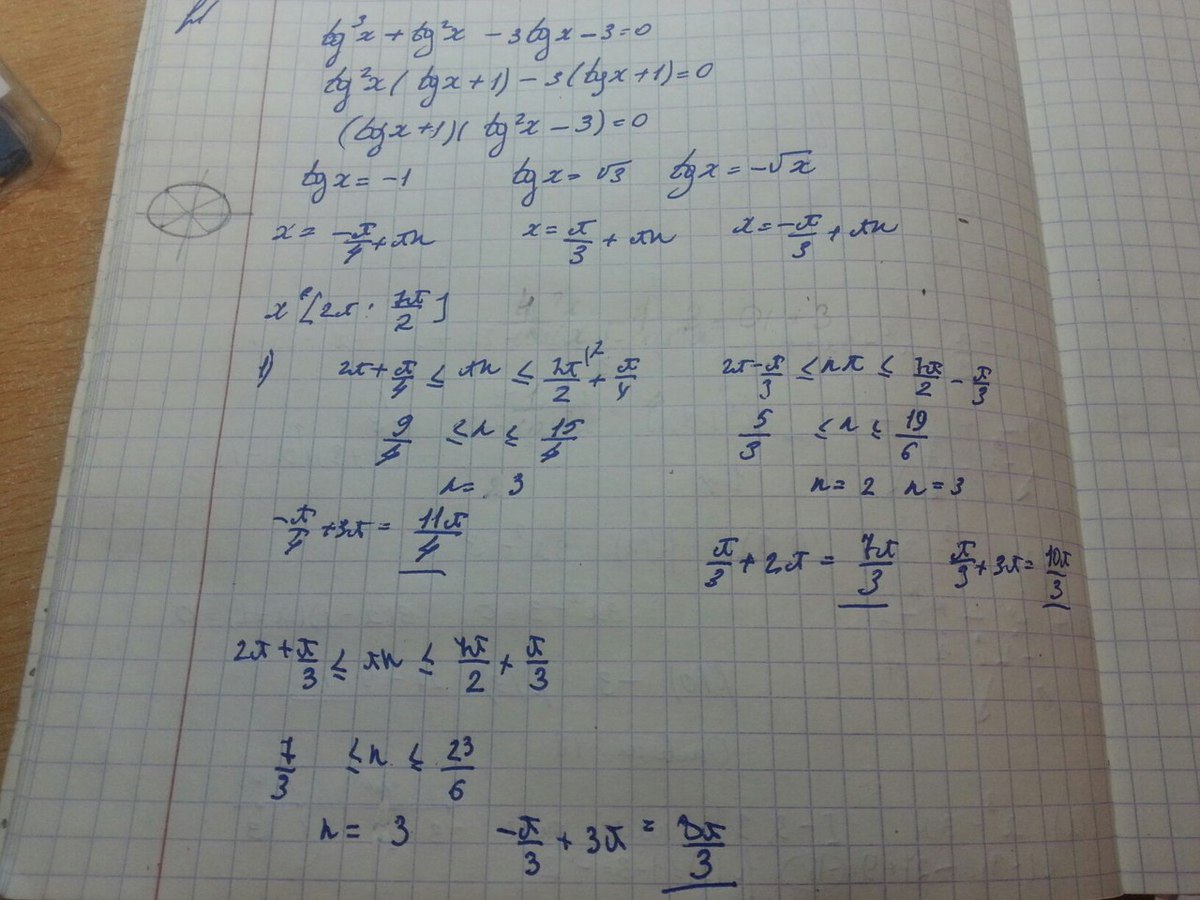 tg³x + tg²x - 3tgx - 3 = 0
tg²x(tgx + 1) - 3(tgx + 1) = 0
(tgx + 1)(tg²x - 3) = 0
tgx = -1 tgx = √3 tgx = -√x
x = -π/4 + πn x = π/3 + πn x = -π/3 + πn
x ∈ [2π; 7π/2]
1) 2π + π/4 ≤ πn ≤ 7π/2 + π/4 2π - π/3 ≤ nπ ≤ 7π/2 - π/3
9/4 ≤ n ≤ 15/4 5/3 ≤ n ≤ 19/6
n = 3 n = 2 n = 3
-π/4 + 3π = 11π/4 π/3 + 2π = 7π/3 π/3 + 3π = 10π/3
2π + π/3 ≤ πn ≤ 7π/2 + π/3
7/3 ≤ n ≤ 23/6
n = 3 -π/3 + 3π = 8π/3